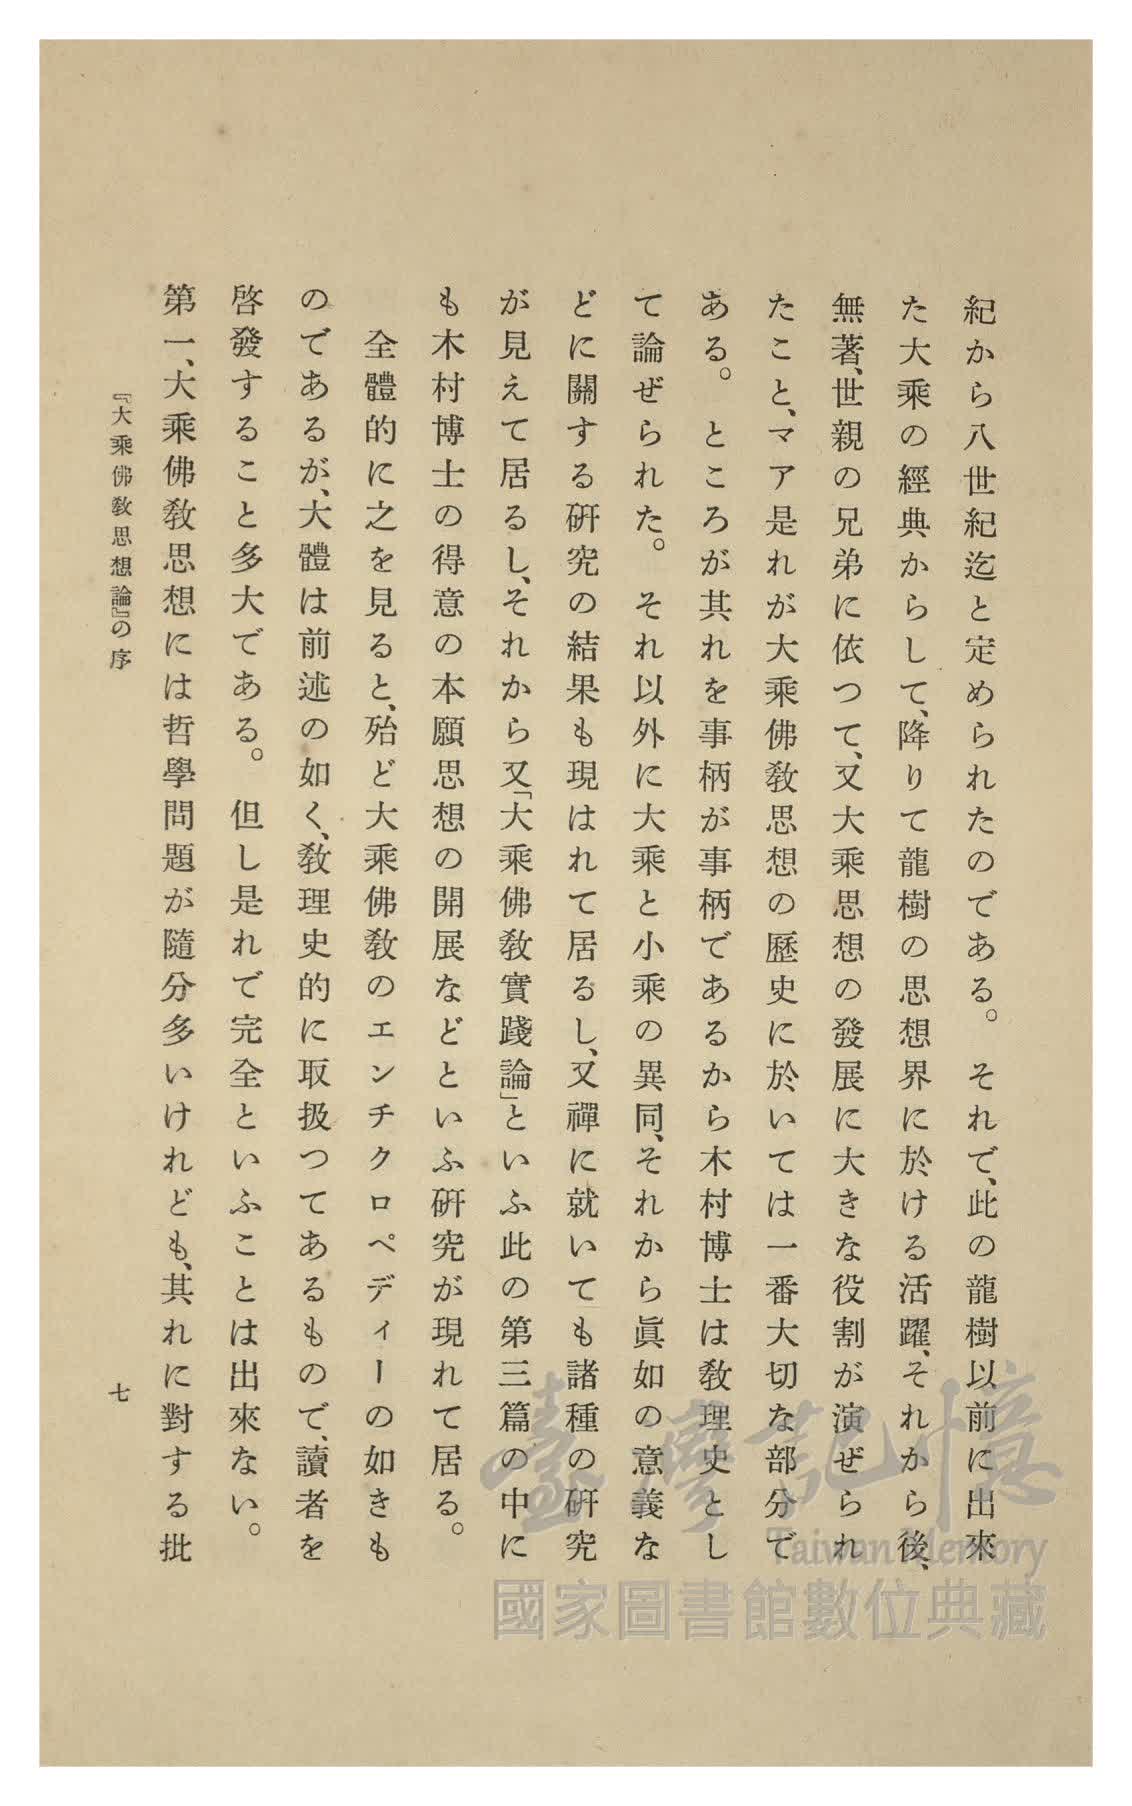 紀から八世紀迄と定められたのである。 それで、此の龍樹以前に出來
た大乘の經典からして、降りて龍樹の思想界に於ける活躍、それから後、
無著、世親の兄弟に依つて、又大乘思想の發展に大きな役割が演ぜられ
たこと、マア是れが大乘佛敎思想の歷史に於いては一番大切な部分で
ある。 ところが其れを事柄が事柄であるから木村博士は敎理史とし
て論ぜられた。 それ以外に大乘と小乘の異同、それから眞如の意義な
どに關する硏究の結果も現はれて居るし、又禪に就いても諸種の硏究
が見えて居るし、それから又「大乘佛敎實踐論」といふ此の第三篇の中に
も木村博士の得意の本願思想の開展などといふ硏究が現れて居る。
全體的に之を見ると、殆ど大乘佛敎のエンチクロペディーの如きも
のであるが、大體は前述の如く、敎理史的に取扱つてあるもので、讀者を
啓發すること多大である。 但し是れで完全といふことは出來ない。
第一、大乘佛敎思想には哲學問題が隨分多いけれども、其れに對する批
『大乘佛敎思想論』の序
七
臺灣記憶
Taiwan Memory
國家圖書館數位典藏